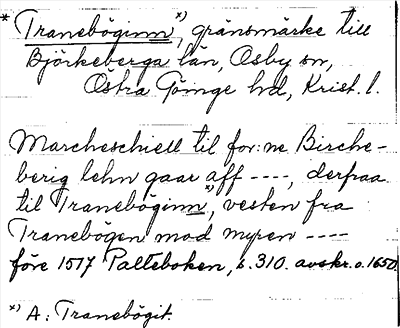 * Traneböginn *), gränsmärke till
Björkeberga län, Osby sn,
Östra Göinge hd, Krist. l.
Marcheschiell til for:ne Birche-
berig lehn gaar aff ----, derfraa
til Traneböginn *), vesten fra
Tranebögen mod myren ----
före 1517 Palteboken, s. 310. avskr. o. 1650.
*) A: Tranebögit.